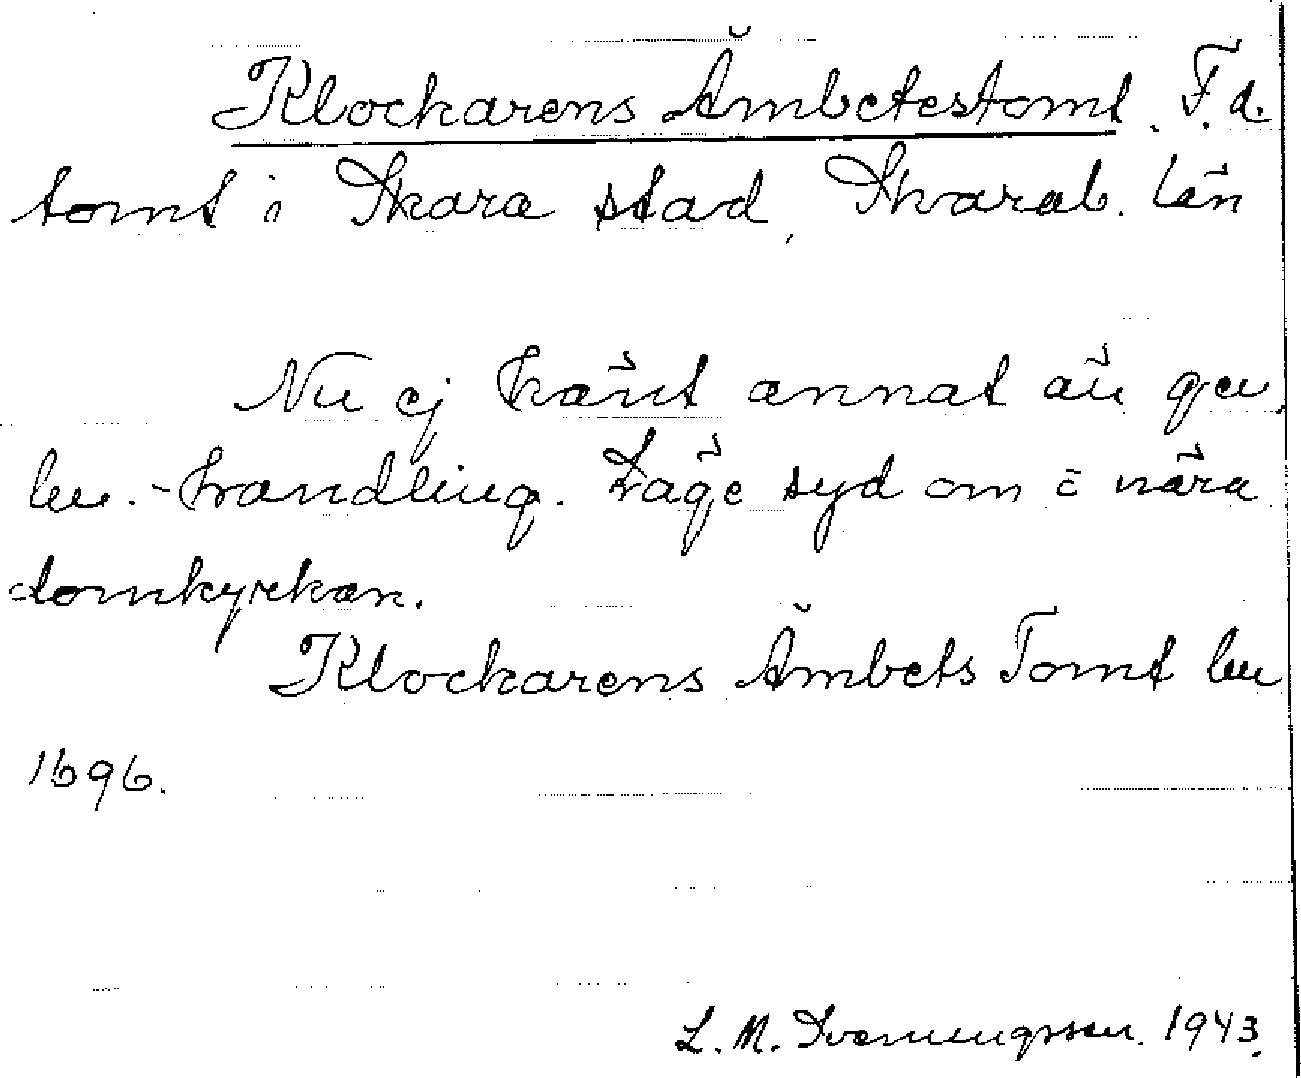 Klockarens Ämbetestomt. F.d.
tomt i Skara stad, Skarab. län
Nu ej känt annat än gen.
lm.-handling. Läge syd om o nära
domkyrkan.
Klockarens Ämbets Tomt lm
1696.
L. M. Svenungsson. 1943.